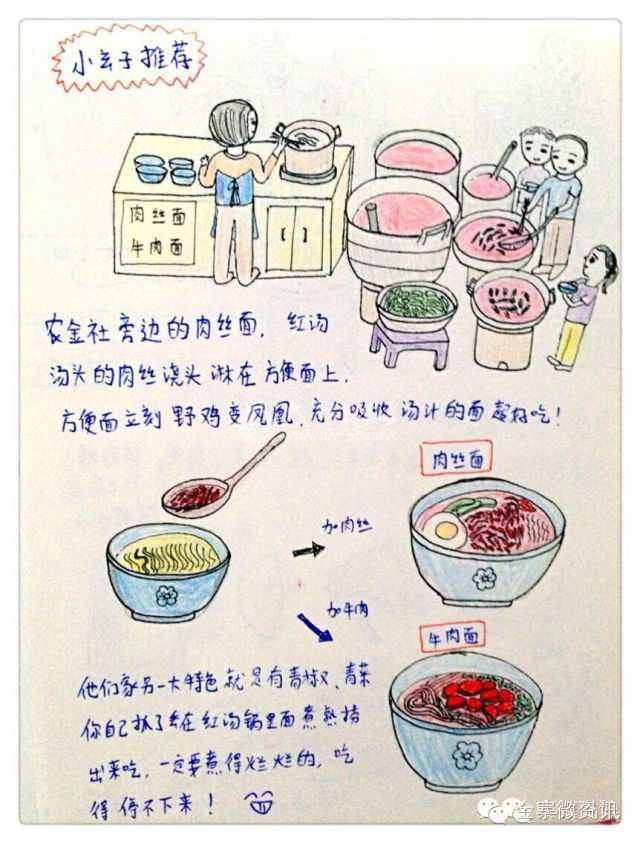 小玄子推荐
肉丝面
牛肉面
农金社旁边的肉丝面，红汤
汤头的肉丝浇头淋在方便面上，
方便面立刻野鸡变凤凰，充分吸收汤汁的面超好吃！
肉丝面
加肉丝
加牛肉
牛肉面
他们家另一大特色就是有青椒、青菜
你自己抓了丢在红汤锅里面煮熟捞
出来吃，一定要煮得烂烂的，吃
得停不下来！
金寨微资讯